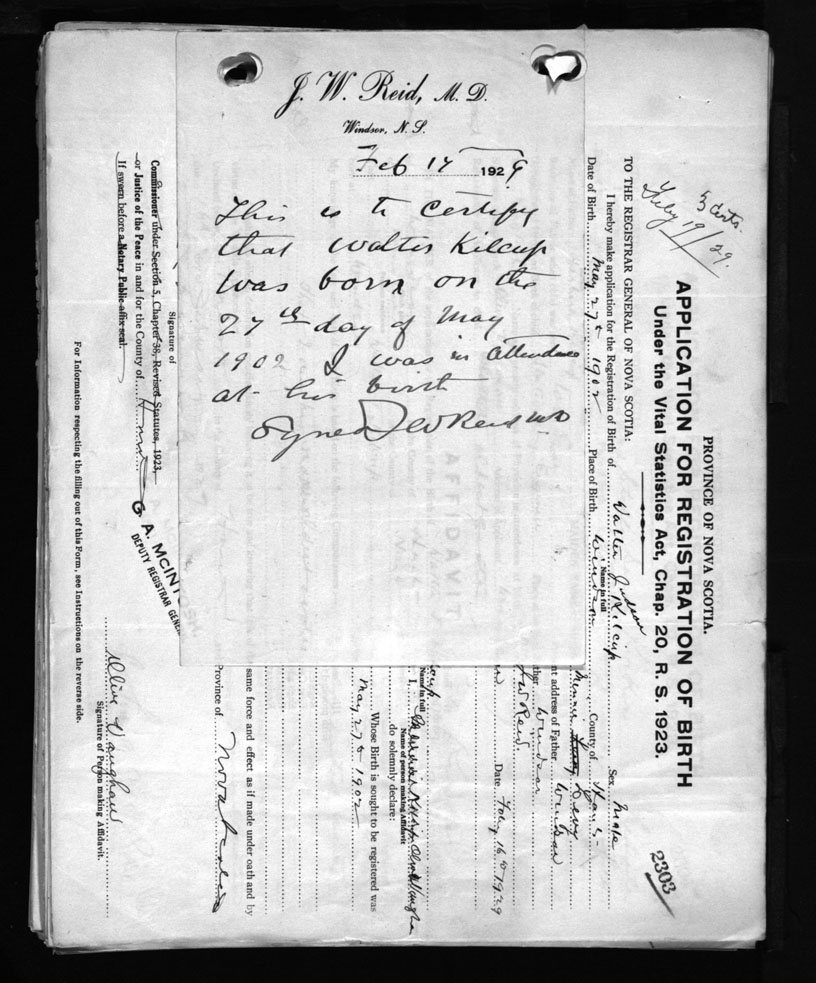 J. W. Reid, M. D.
Windsor, N. S.
Feb 17 1929
This is to Certify
that Walter Kilcup
was born on the
27th day of May
1902 I was in attendance
at his birth
Signed J W Reid MD
5 Certs.
Feby 19/29.
PROVINCE OF NOVA SCOTIA.
APPLICATION FOR REGISTRATION OF BIRTH
Under the Vital Statistics Act, Chap. 20, R. S. 1923.
2303
TO THE REGISTRAR GENERAL OF NOVA SCOTIA:
I hereby make application for the Registration of Birth of Walter Judson Kilcup Sex Male
Name in full
Date of Birth May 27th 1902 Place of Birth Windsor County of Hants
Minnie Levy
nt address of Father Windsor
ther Windsor
J W Reid
Date Feby 16th 1929
AFFIDAVIT
Name in full
I, Olive Vaughan
Name of person making Affidavit
do solemnly declare:
Whose Birth is sought to be registered was
May 27th 1902
same force and effect as if made under oath and by
Province of Nova Scotia
Signature of
Commissioner under Section 5, Chapter 38, Revised Statutes, 1923.
or Justice of the Peace in and for the County of
If sworn before a Notary Public affix seal.
G A. MCINTO
DEPUTY REGISTRAR GENER
Olive Vaughan
Signature of Person making Affidavit.
For Information respecting the filling out of this Form, see Instructions on the reverse side.